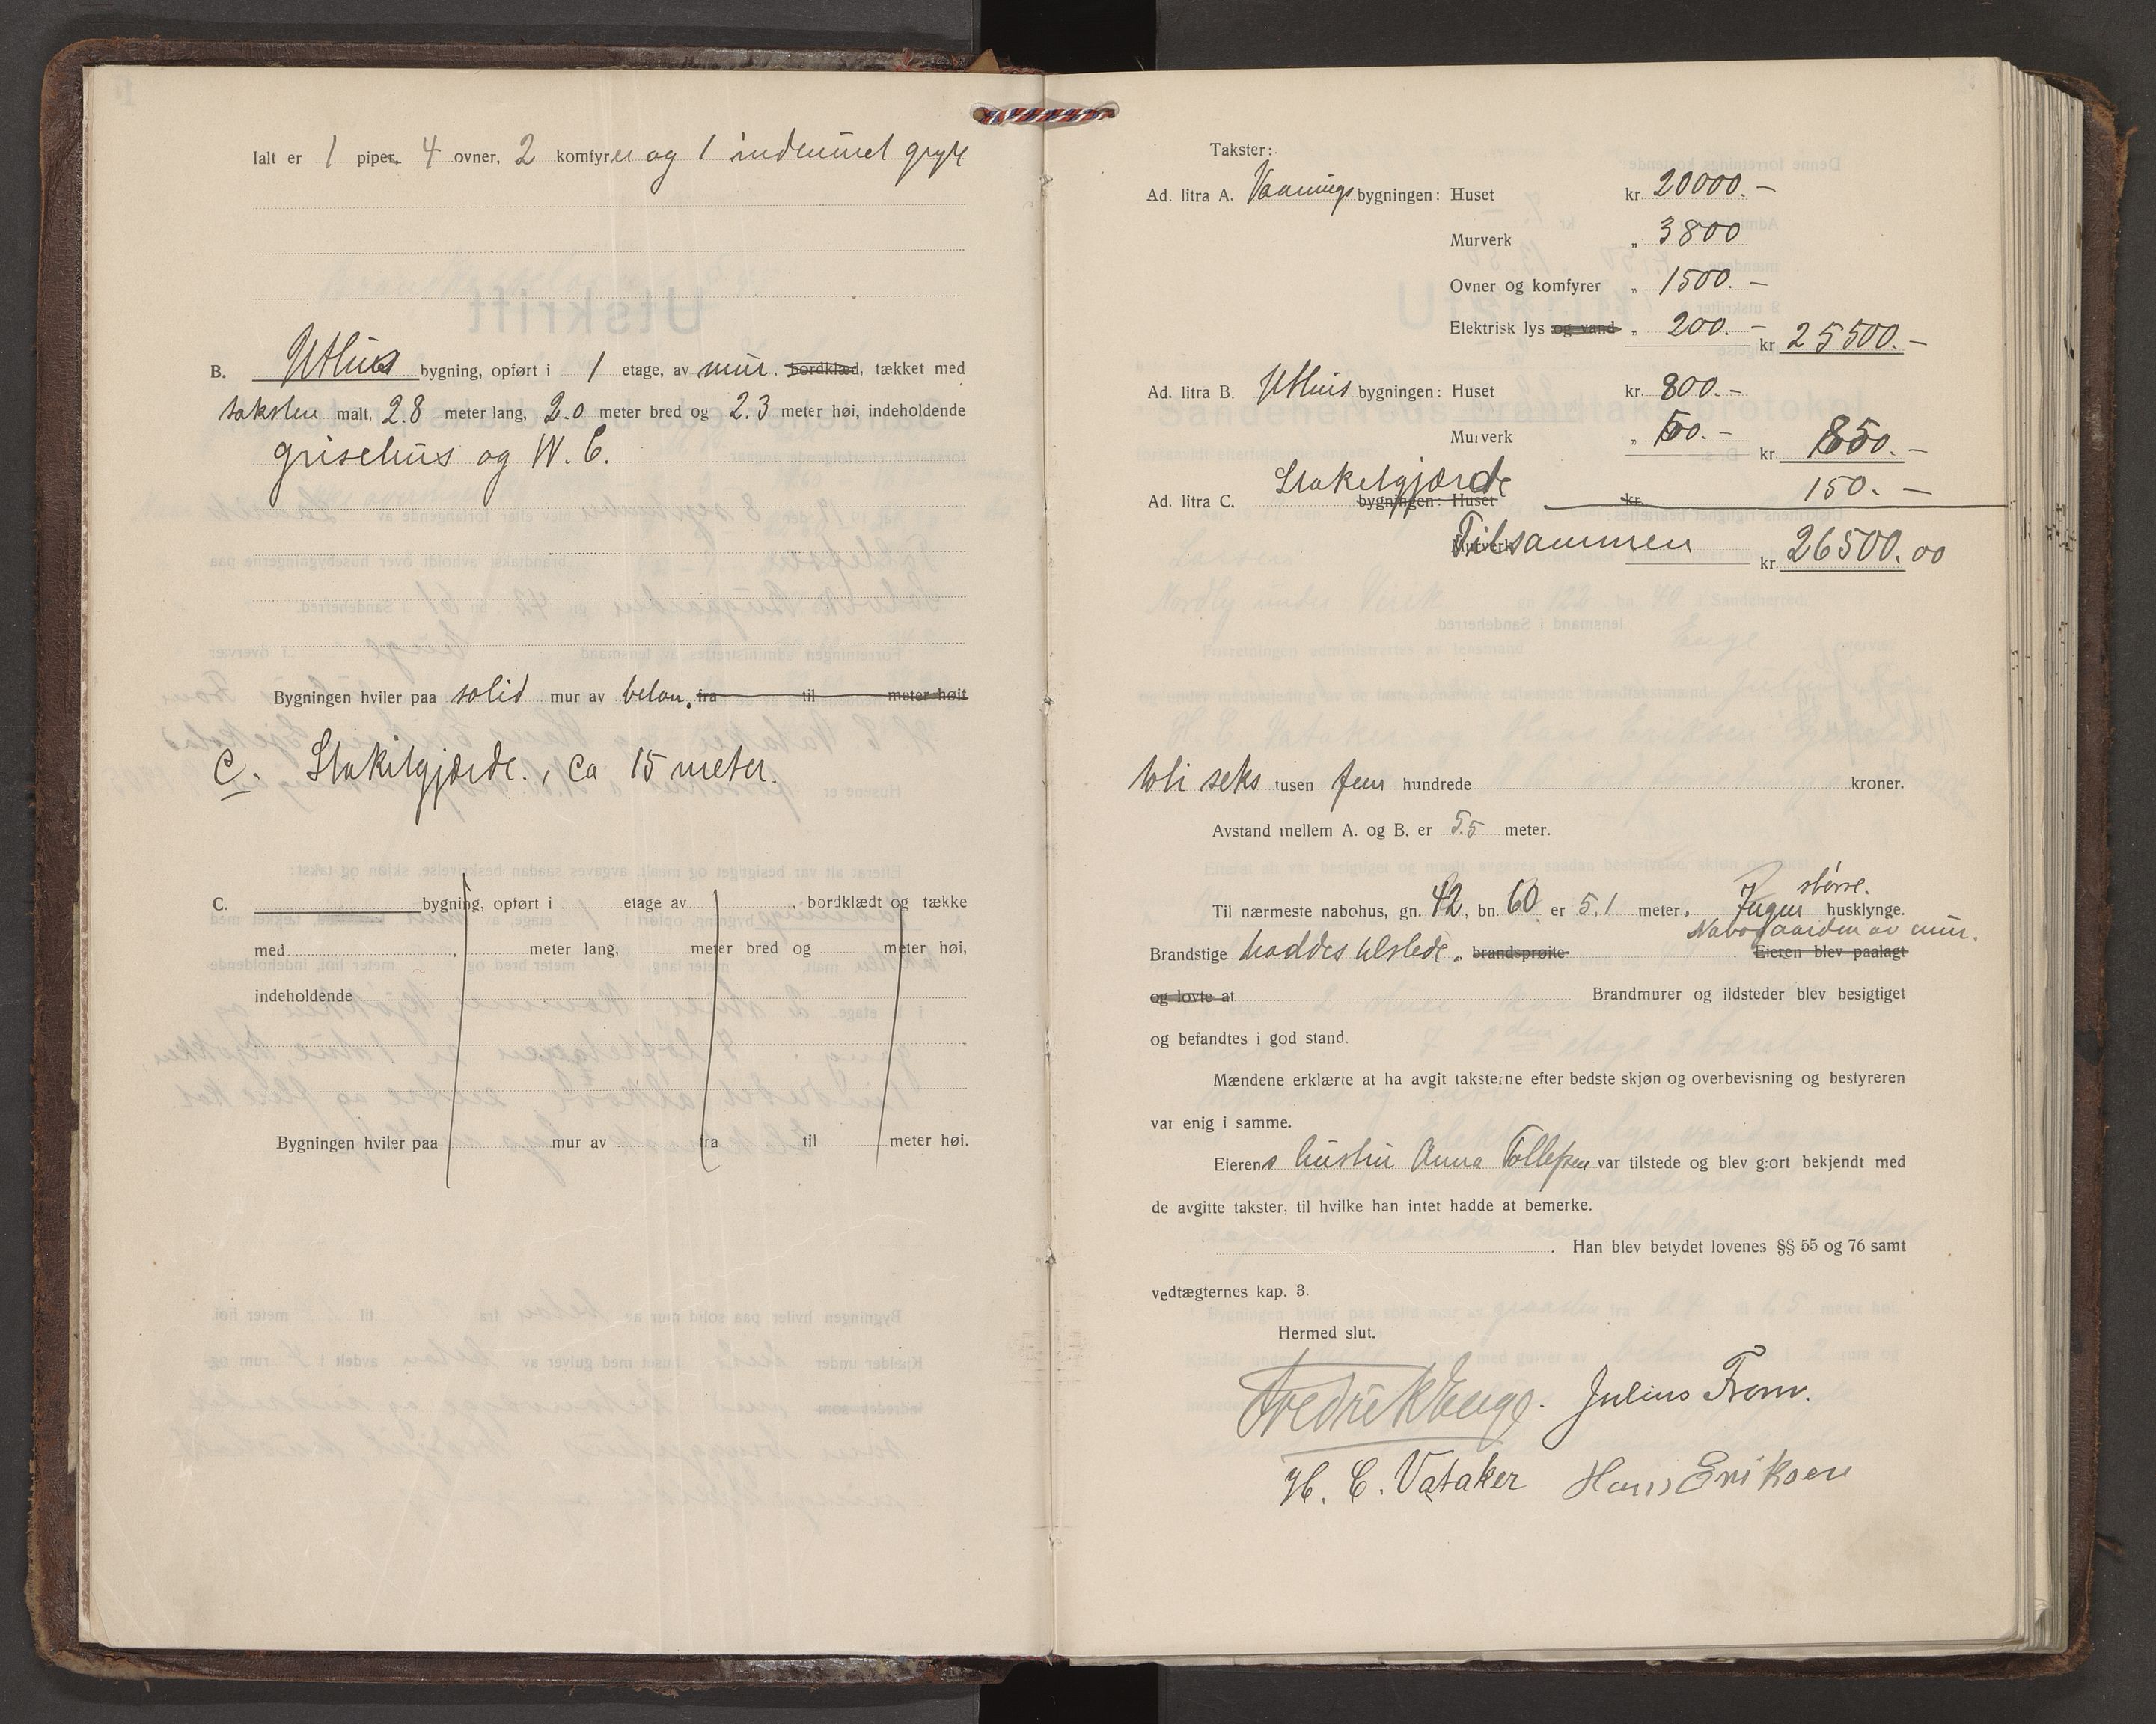 Ialt er 1 piper, 4 ovner, 2 komfyrer og 1 indemuret gryte
B. Uthus bygning, opført i 1 etage, av mur. bordklæd, tækket med
taksten malt, 2.8 meter lang, 2.0 meter bred og 2.3 meter høi, indeholdende
grisehus og W. C.
Bygningen hviler paa solid mur av beton, fra til meter høit
C. Stakitgjærde, ca 15 meter.
C. bygning, opført i etage av , bordklædt og tække
med , meter lang, meter bred og meter høi,
indeholdende
Bygningen hviler paa mur av fra til meter høi.
Takster:
Ad. litra A. Vaanings bygningen: Huset kr. 20000.—
Murverk „ 3800
Ovner og komfyrer „ 1500.—
Elektrisk lys og vand „ 200.— kr. 25500.—
Ad. litra B. Uthus bygningen: Huset kr. 800.—
Murverk „ 50.— kr. 850.—
Ad. litra C. Stakitgjærde bygningen: Huset kr. 150.—
Murverk Tilsammen kr. 26500.00
toti seks tusen fem hundrede kroner.
Avstand mellem A. og B. er 5.5 meter.
større.
Til nærmeste nabohus, gn. 42, bn. 60 er 5.1 meter. Ingen husklynge.
Nabogaarden av mur.
Brandstige haddes tilstede. brandsprøite Eieren blev paalagt
og lovte at Brandmurer og ildsteder blev besigtiget
og befandtes i god stand.
Mændene erklærte at ha avgit taksterne efter bedste skjøn og overbevisning og bestyreren
var enig i samme.
Eierens hustru Anna Tollefsen var tilstede og blev gjort bekjendt med
de avgitte takster, til hvilke han intet hadde at bemerke.
. Han blev betydet lovenes §§ 55 og 76 samt
vedtægternes kap. 3.
Hermed slut.
Fredrik Enge. Julius From.
H. C. Vataker Hans Eriksen